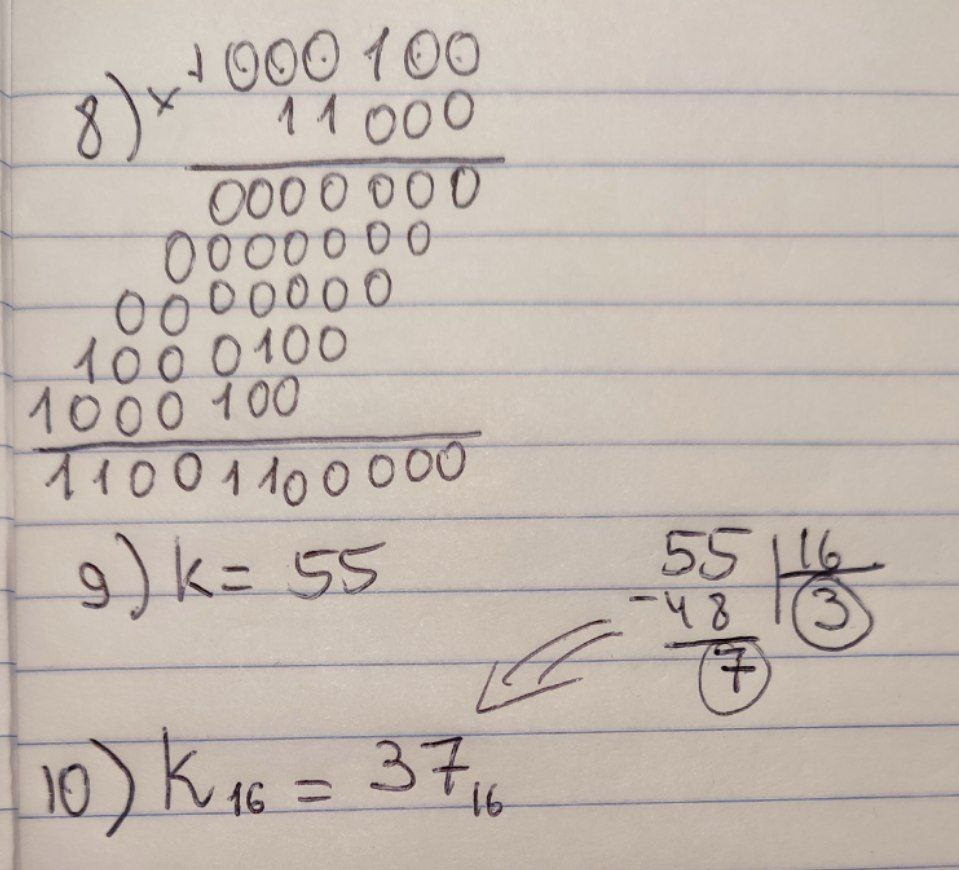 1000100
8) × 11000
0000000
0000000
0000000
1000100
1000100
11001100000
9) k = 55
55 | 16
- 48 3
7
10) K₁₆ = 37₁₆